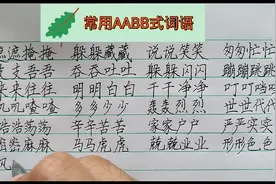 常用AABB式词语
遮遮掩掩 躲躲藏藏 说说笑笑 匆匆忙忙
支支吾吾 吞吞吐吐 躲躲闪闪 蹦蹦跳跳
来来往往 明明白白 干干净净 叮叮当当
叽叽喳喳 多多少少 轰轰烈烈 世世代代
浩浩荡荡 辛辛苦苦 家家户户 严严实实
密密麻麻 马马虎虎 兢兢业业 形形色色
风